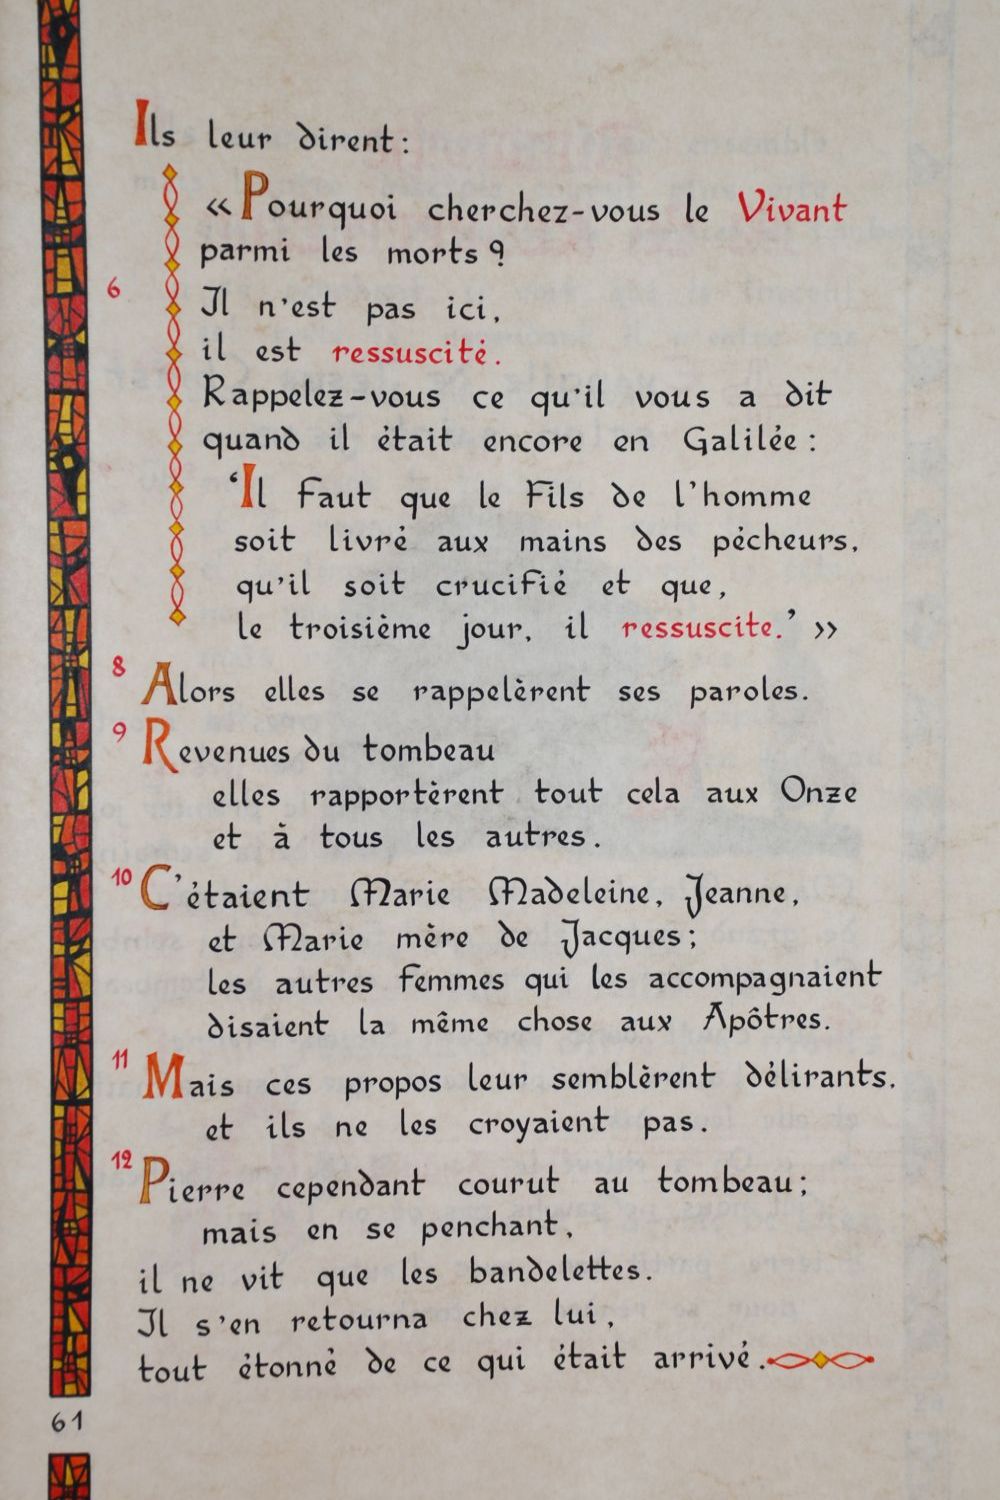 Ils leur dirent:
«Pourquoi cherchez-vous le Vivant
parmi les morts?
6 Il n'est pas ici,
il est ressuscité.
Rappelez-vous ce qu'il vous a dit
quand il était encore en Galilée:
'Il faut que le Fils de l'homme
soit livré aux mains des pécheurs,
qu'il soit crucifié et que,
le troisième jour, il ressuscite.' »
8 Alors elles se rappelèrent ses paroles.
9 Revenues du tombeau
elles rapportèrent tout cela aux Onze
et à tous les autres.
10 C'étaient Marie Madeleine, Jeanne,
et Marie mère de Jacques;
les autres femmes qui les accompagnaient
disaient la même chose aux Apôtres.
11 Mais ces propos leur semblèrent délirants,
et ils ne les croyaient pas.
12 Pierre cependant courut au tombeau;
mais en se penchant,
il ne vit que les bandelettes.
Il s'en retourna chez lui,
tout étonné de ce qui était arrivé.
61